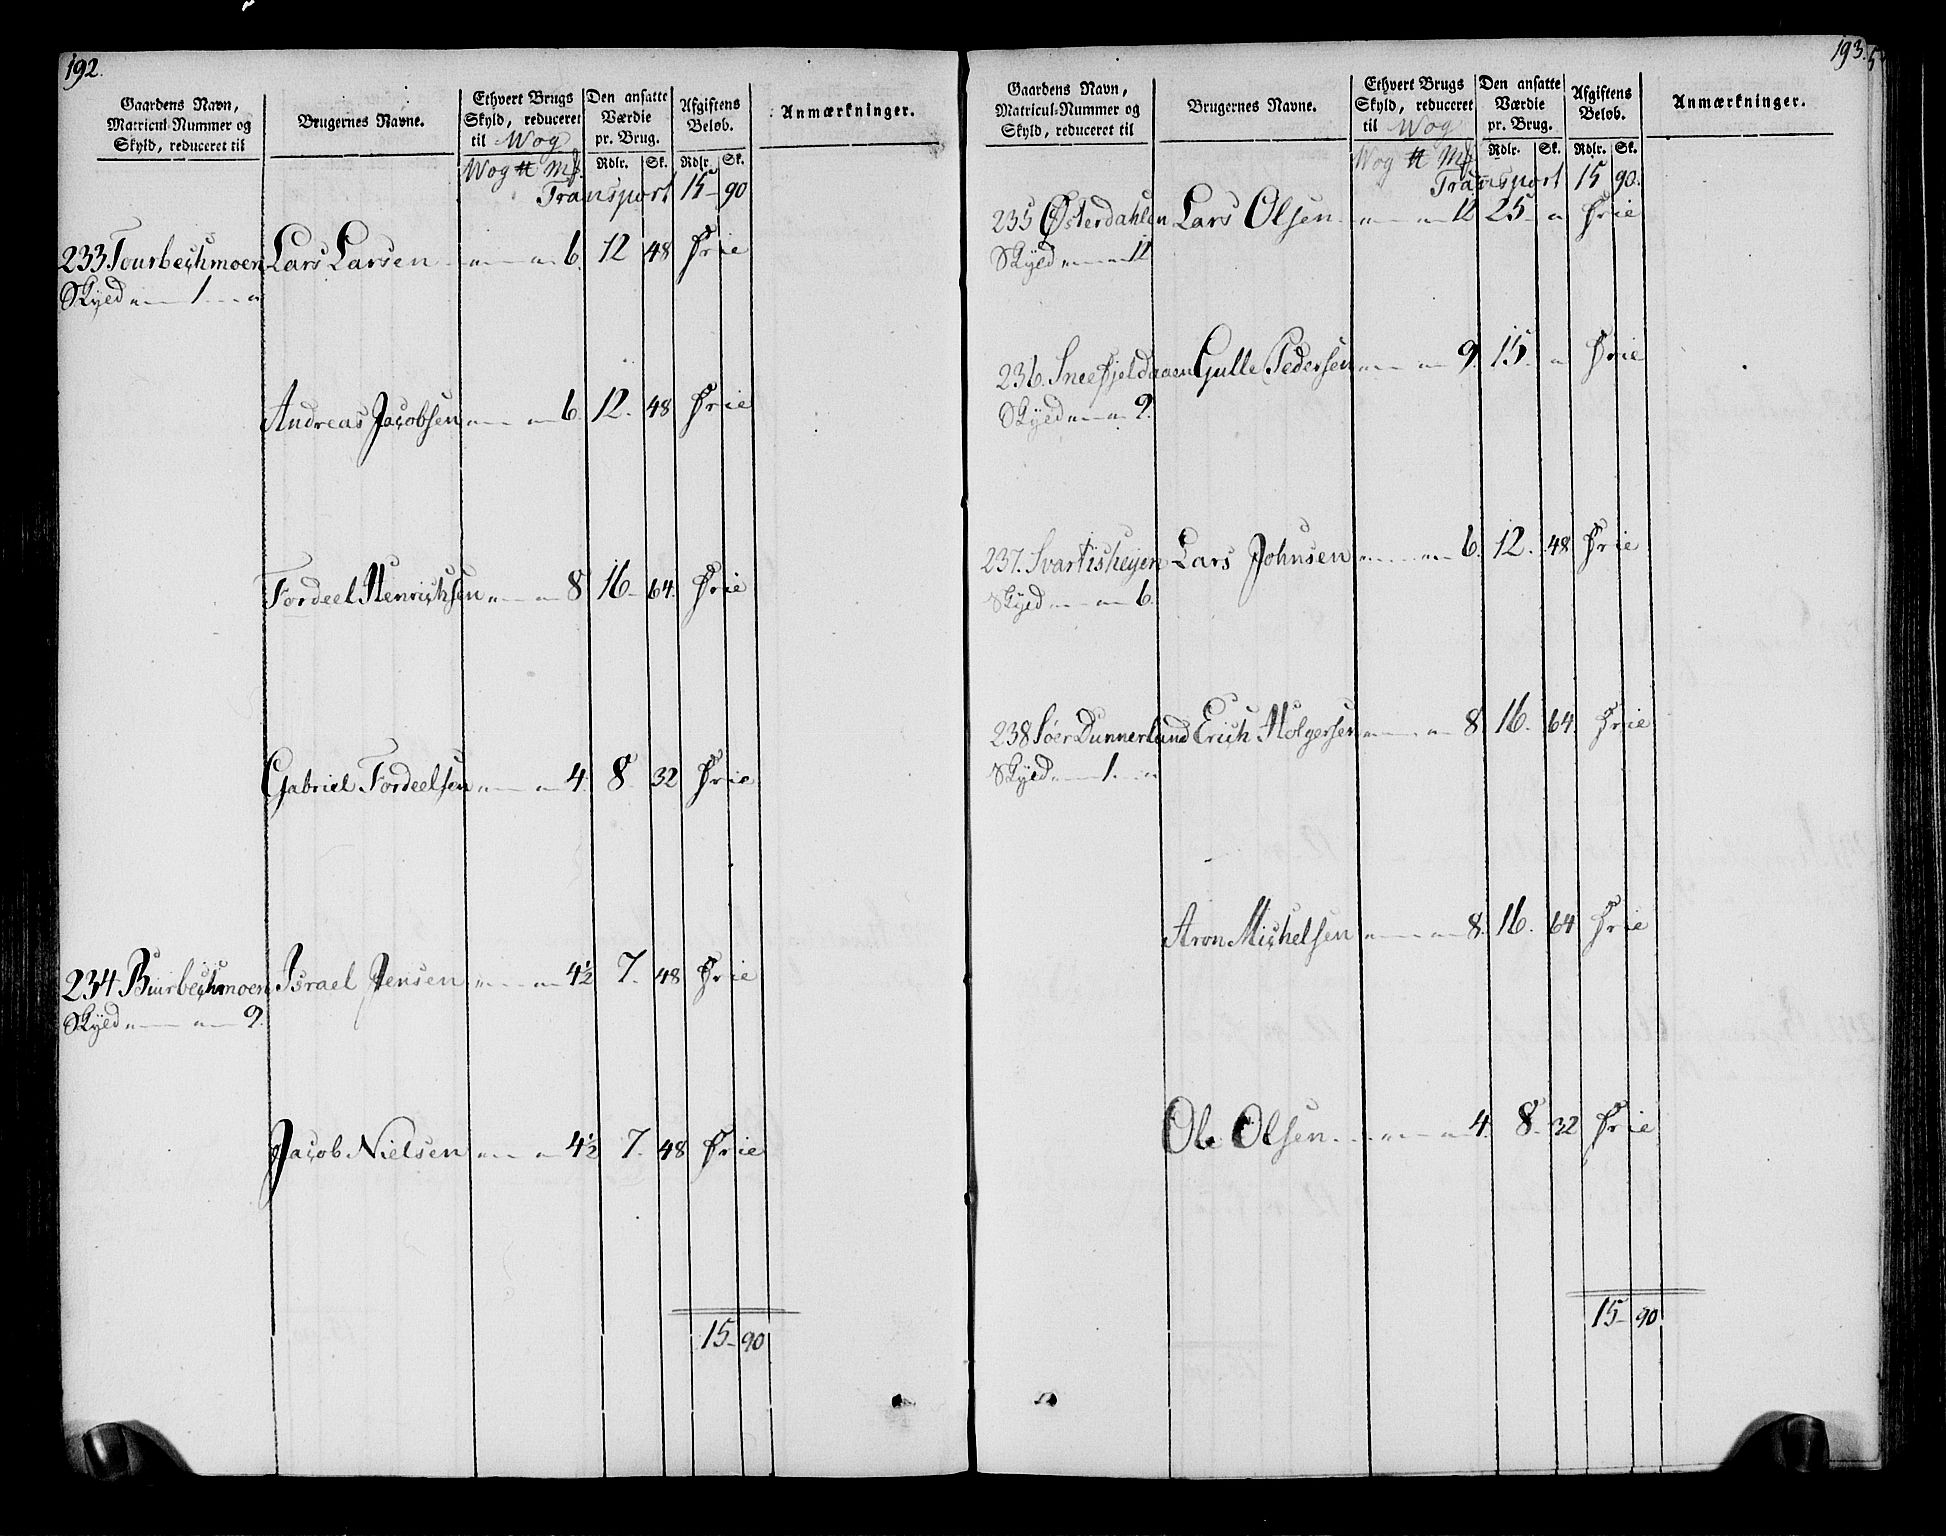 192.
Gaardens Navn, Matricul-Nummer og Skyld, reduceret til
Brugernes Navne.
Ethvert Brugs Skyld, reduceret til Wog
Den ansatte Værdie pr. Brug.
Afgiftens Beløb.
Anmærkninger.
Wog ℔ Mk. Rdlr. Sk. Rdlr. Sk.
Transport 15 90
233 Tourbechmoen Lars Larsen 6. 12 48 Frie
Skyld 1
Andreas Jacobsen 6. 12. 48 Frie
Fordeel Henrichsen 8 16. 64. Frie
Gabriel Fordeelsen 4. 8. 32 Frie
234 Buurbechmoen Israel Jensen 4½ 7. 48 Frie
Skyld 9.
Jacob Nielsen 4½ 7. 48 Frie
15 90
193.
Gaardens Navn, Matricul-Nummer og Skyld, reduceret til
Brugernes Navne.
Ethvert Brugs Skyld, reduceret til Wog
Den ansatte Værdie pr. Brug.
Afgiftens Beløb.
Anmærkninger.
Wog ℔ Mk. Rdlr. Sk. Rdlr. Sk.
Transport 15 90.
235 Østerdahlen Lars Olsen 12 25 Frie
Skyld 12
236. Sneefjeldaaen Gulle Pedersen 9. 15. Frie
Skyld 9.
237. Svartisheyen Lars Johnsen 6. 12. 48 Frie
Skyld 6.
238 Søer Dunnerland Erich Holgersen 8. 16. 64. Frie
Skyld 1.
Aron Michelsen 8. 16. 64 Frie
Ole Olsen 4. 8. 32 Frie
15 90